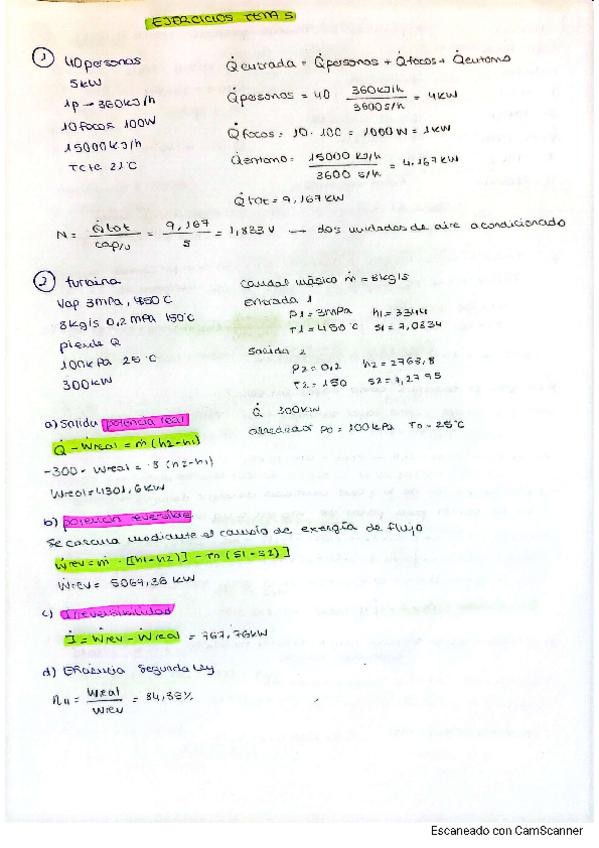 EJERCICIOS TEMA 5
1 40 personas
5kW
1p → 360KJ/h
10 focos 100W
15000KJ/h
Tcte 21°C
Q̇entrada = Q̇personas + Q̇focos + Q̇entorno
Q̇personas = 40 · 360KJ/h / 3600 s/h = 4KW
Q̇focos = 10 · 100 = 1000W = 1KW
Q̇entorno = 15000 KJ/h / 3600 s/h = 4,167KW
Q̇tot = 9,167KW
N = Q̇tot / cap/u = 9,167 / 5 = 1,833 → dos unidades de aire acondicionado
2 turbina
Vap 3MPa, 450°C
8kg/s 0,2 MPa 150°C
pierde Q
100kPa 25°C
300KW
caudal másico ṁ = 8kg/s
entrada 1
P1 = 3MPa h1 = 3344
T1 = 450°C s1 = 7,0834
salida 2
P2 = 0,2 h2 = 2768,8
T2 = 150 s2 = 7,2795
Q̇ 300KW
alrededor P0 = 100kPa T0 = 25°C
a) Salida potencia real
Q̇ - Ẇreal = ṁ (h2-h1)
-300 - Wreal = 8 (h2-h1)
Wreal = 4301,6 KW
b) potencia reversible
Se calcula mediante el cambio de exergía de flujo
Ẇrev = ṁ · [(h1-h2)] - T0 (S1-S2)]
Ẇrev = 5069,36 KW
c) Irreversibilidad
İ = Ẇrev - Ẇreal = 767,76KW
d) Eficiencia Segunda Ley
η11 = Wreal / Wrev = 84,85%
Escaneado con CamScanner